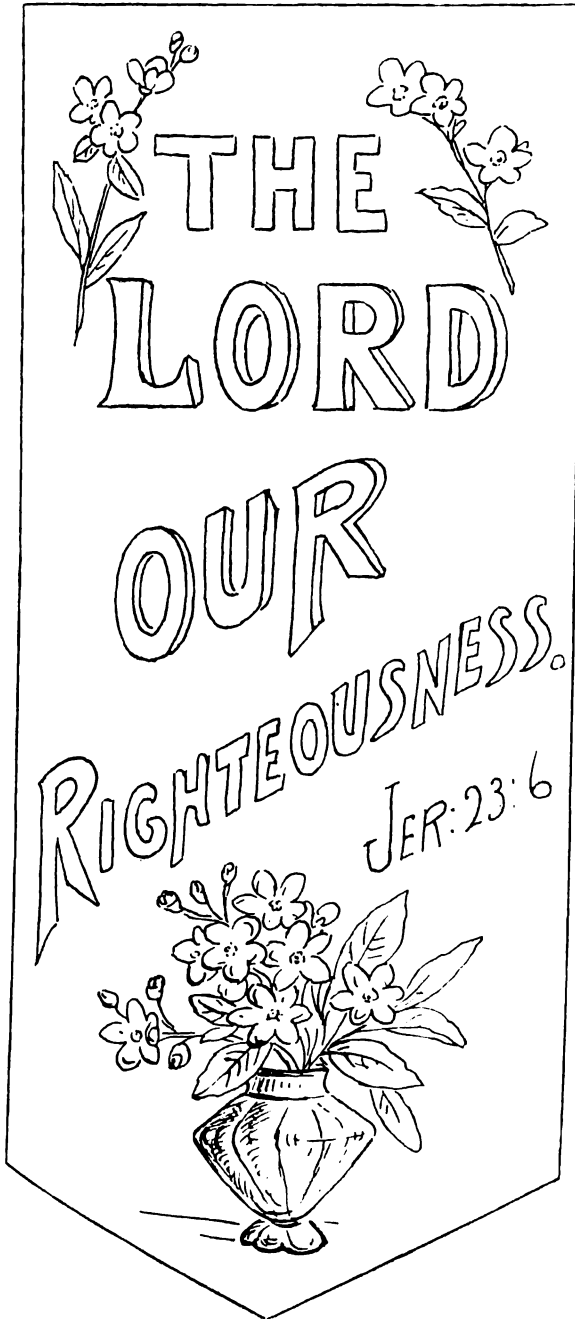 THE
LORD
OUR
RIGHTEOUSNESS.
JER: 23: 6